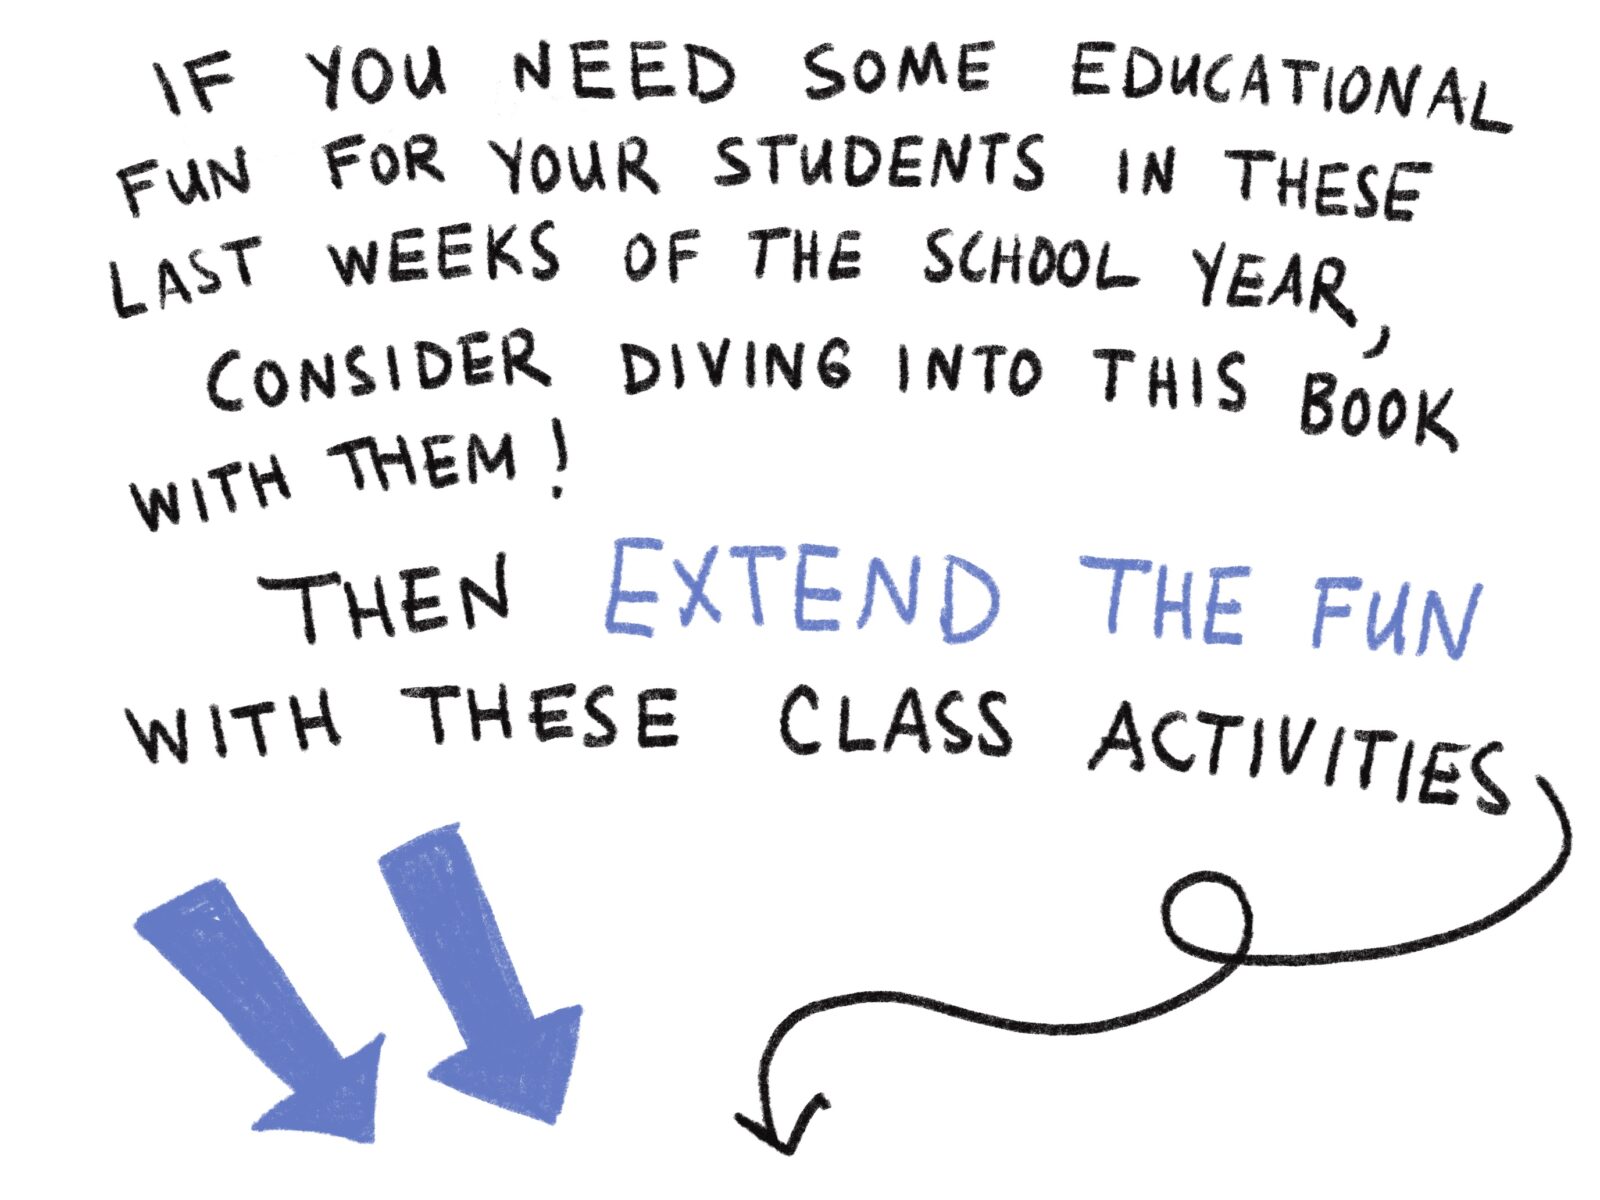 IF YOU NEED SOME EDUCATIONAL
FUN FOR YOUR STUDENTS IN THESE
LAST WEEKS OF THE SCHOOL YEAR,
CONSIDER DIVING INTO THIS BOOK
WITH THEM!
THEN EXTEND THE FUN
WITH THESE CLASS ACTIVITIES